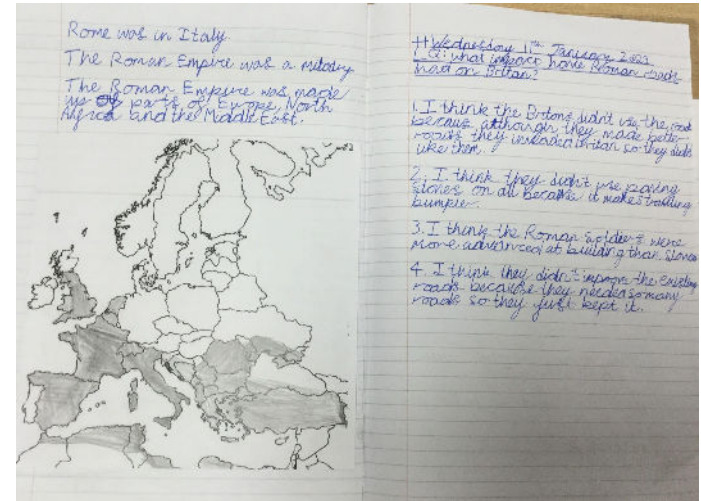 Rome was in Italy.
The Roman Empire was a
The Roman Empire was made
up of parts of Europe, North
Africa and the Middle East.
Wednesday 11th January 2023
L.Q: what impact have Roman roads
had on Britan?
1. I think the Britons didn't use the road
becaus although they made better
roads they invaded so they didn't
like them.
2. I think they didn't use paving
stones on all because it makes traveling
bumpier.
3. I think the Roman Soldiers were
more advanced at building than slaves
4. I think they didn't improve the existing
roads because they needed so many
roads so they just kept it.